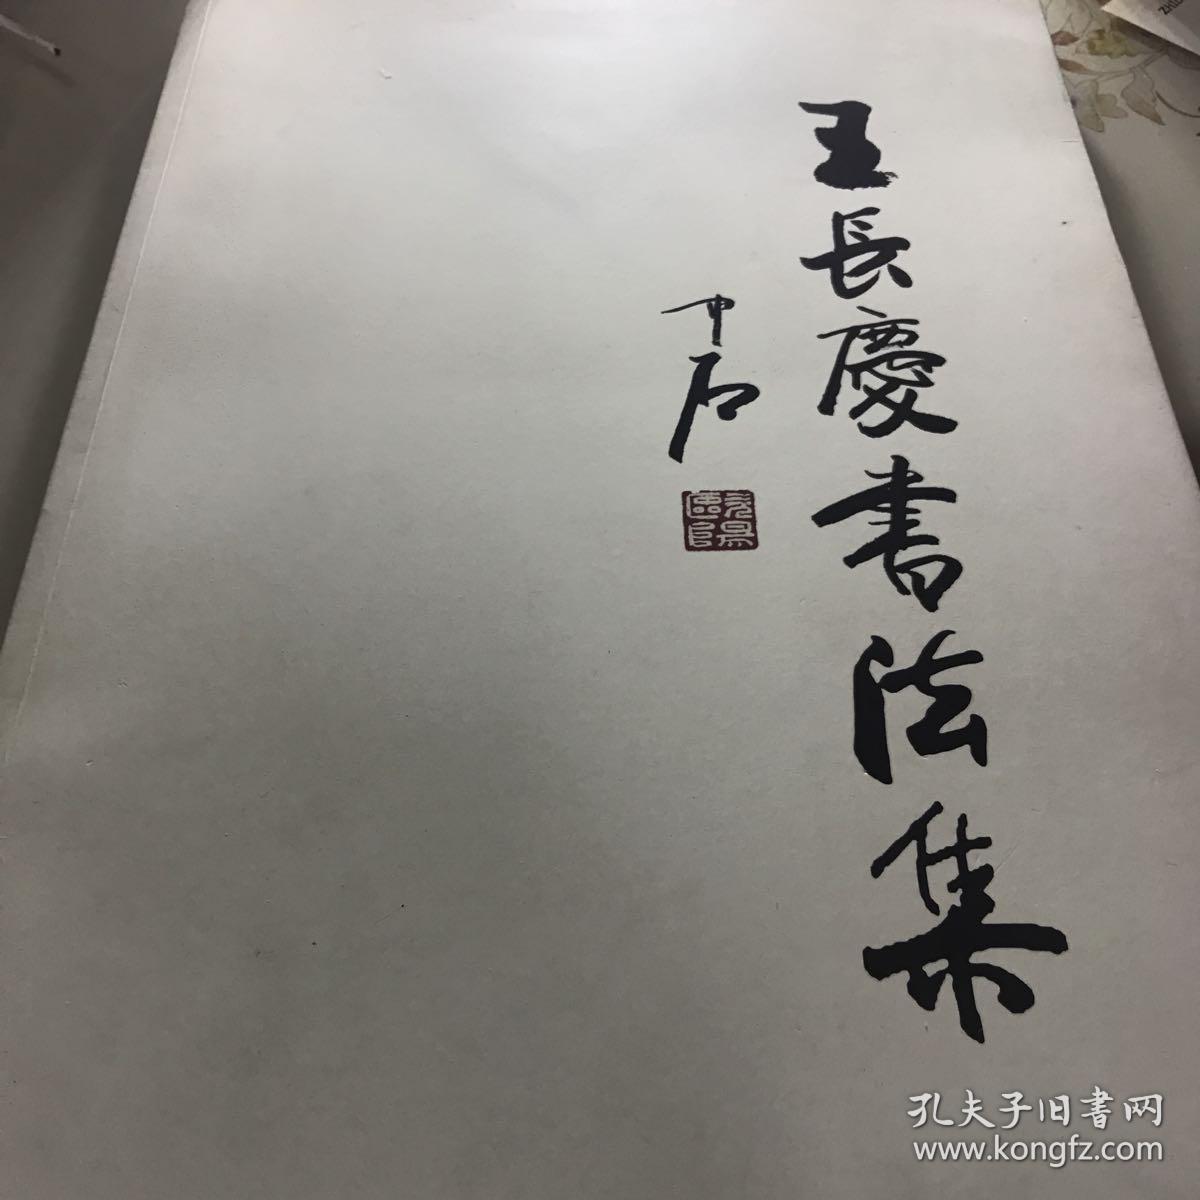 王長慶書法集
中石
孔夫子旧書网
www.kongfz.com